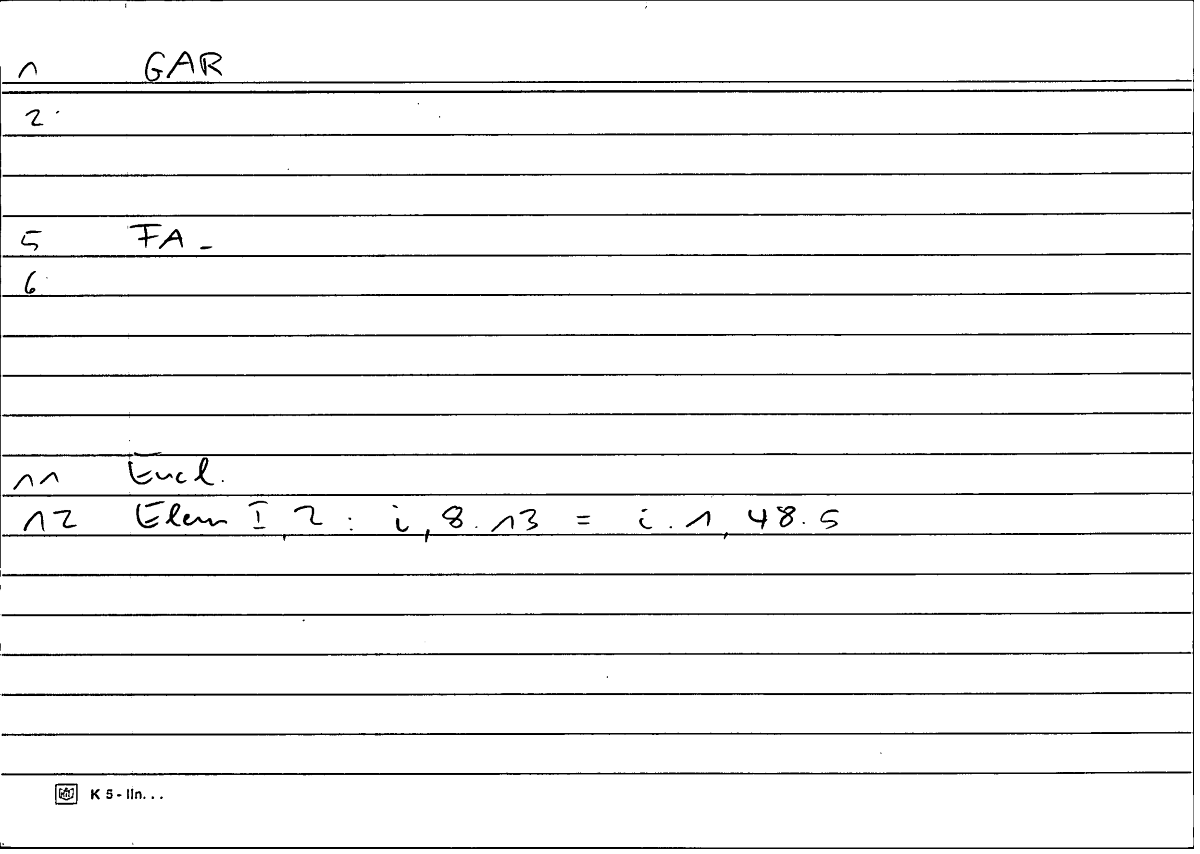 1 GAR
2
5 FA -
6
11 Eucl.
12 Elem I, 2 : i, 8. 13 = i. 1, 48. 5
K 5 - lin. . .